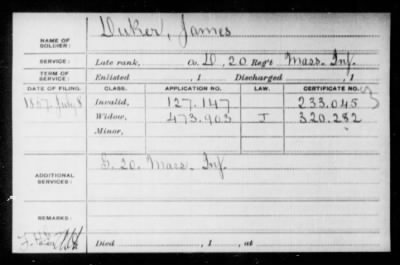 NAME OF SOLDIER: Duker, James
SERVICE: Late rank, Co. D, 20 Reg't Mass. Inf.
TERM OF SERVICE: Enlisted , 1 Discharged , 1
DATE OF FILING. CLASS. APPLICATION NO. LAW. CERTIFICATE NO.
1867 July 8 Invalid, 127.147 233.045
Widow, 473.903 J 320.282
Minor,
ADDITIONAL SERVICES: G. 20. Mass. Inf.
REMARKS:
Died , 1 , at